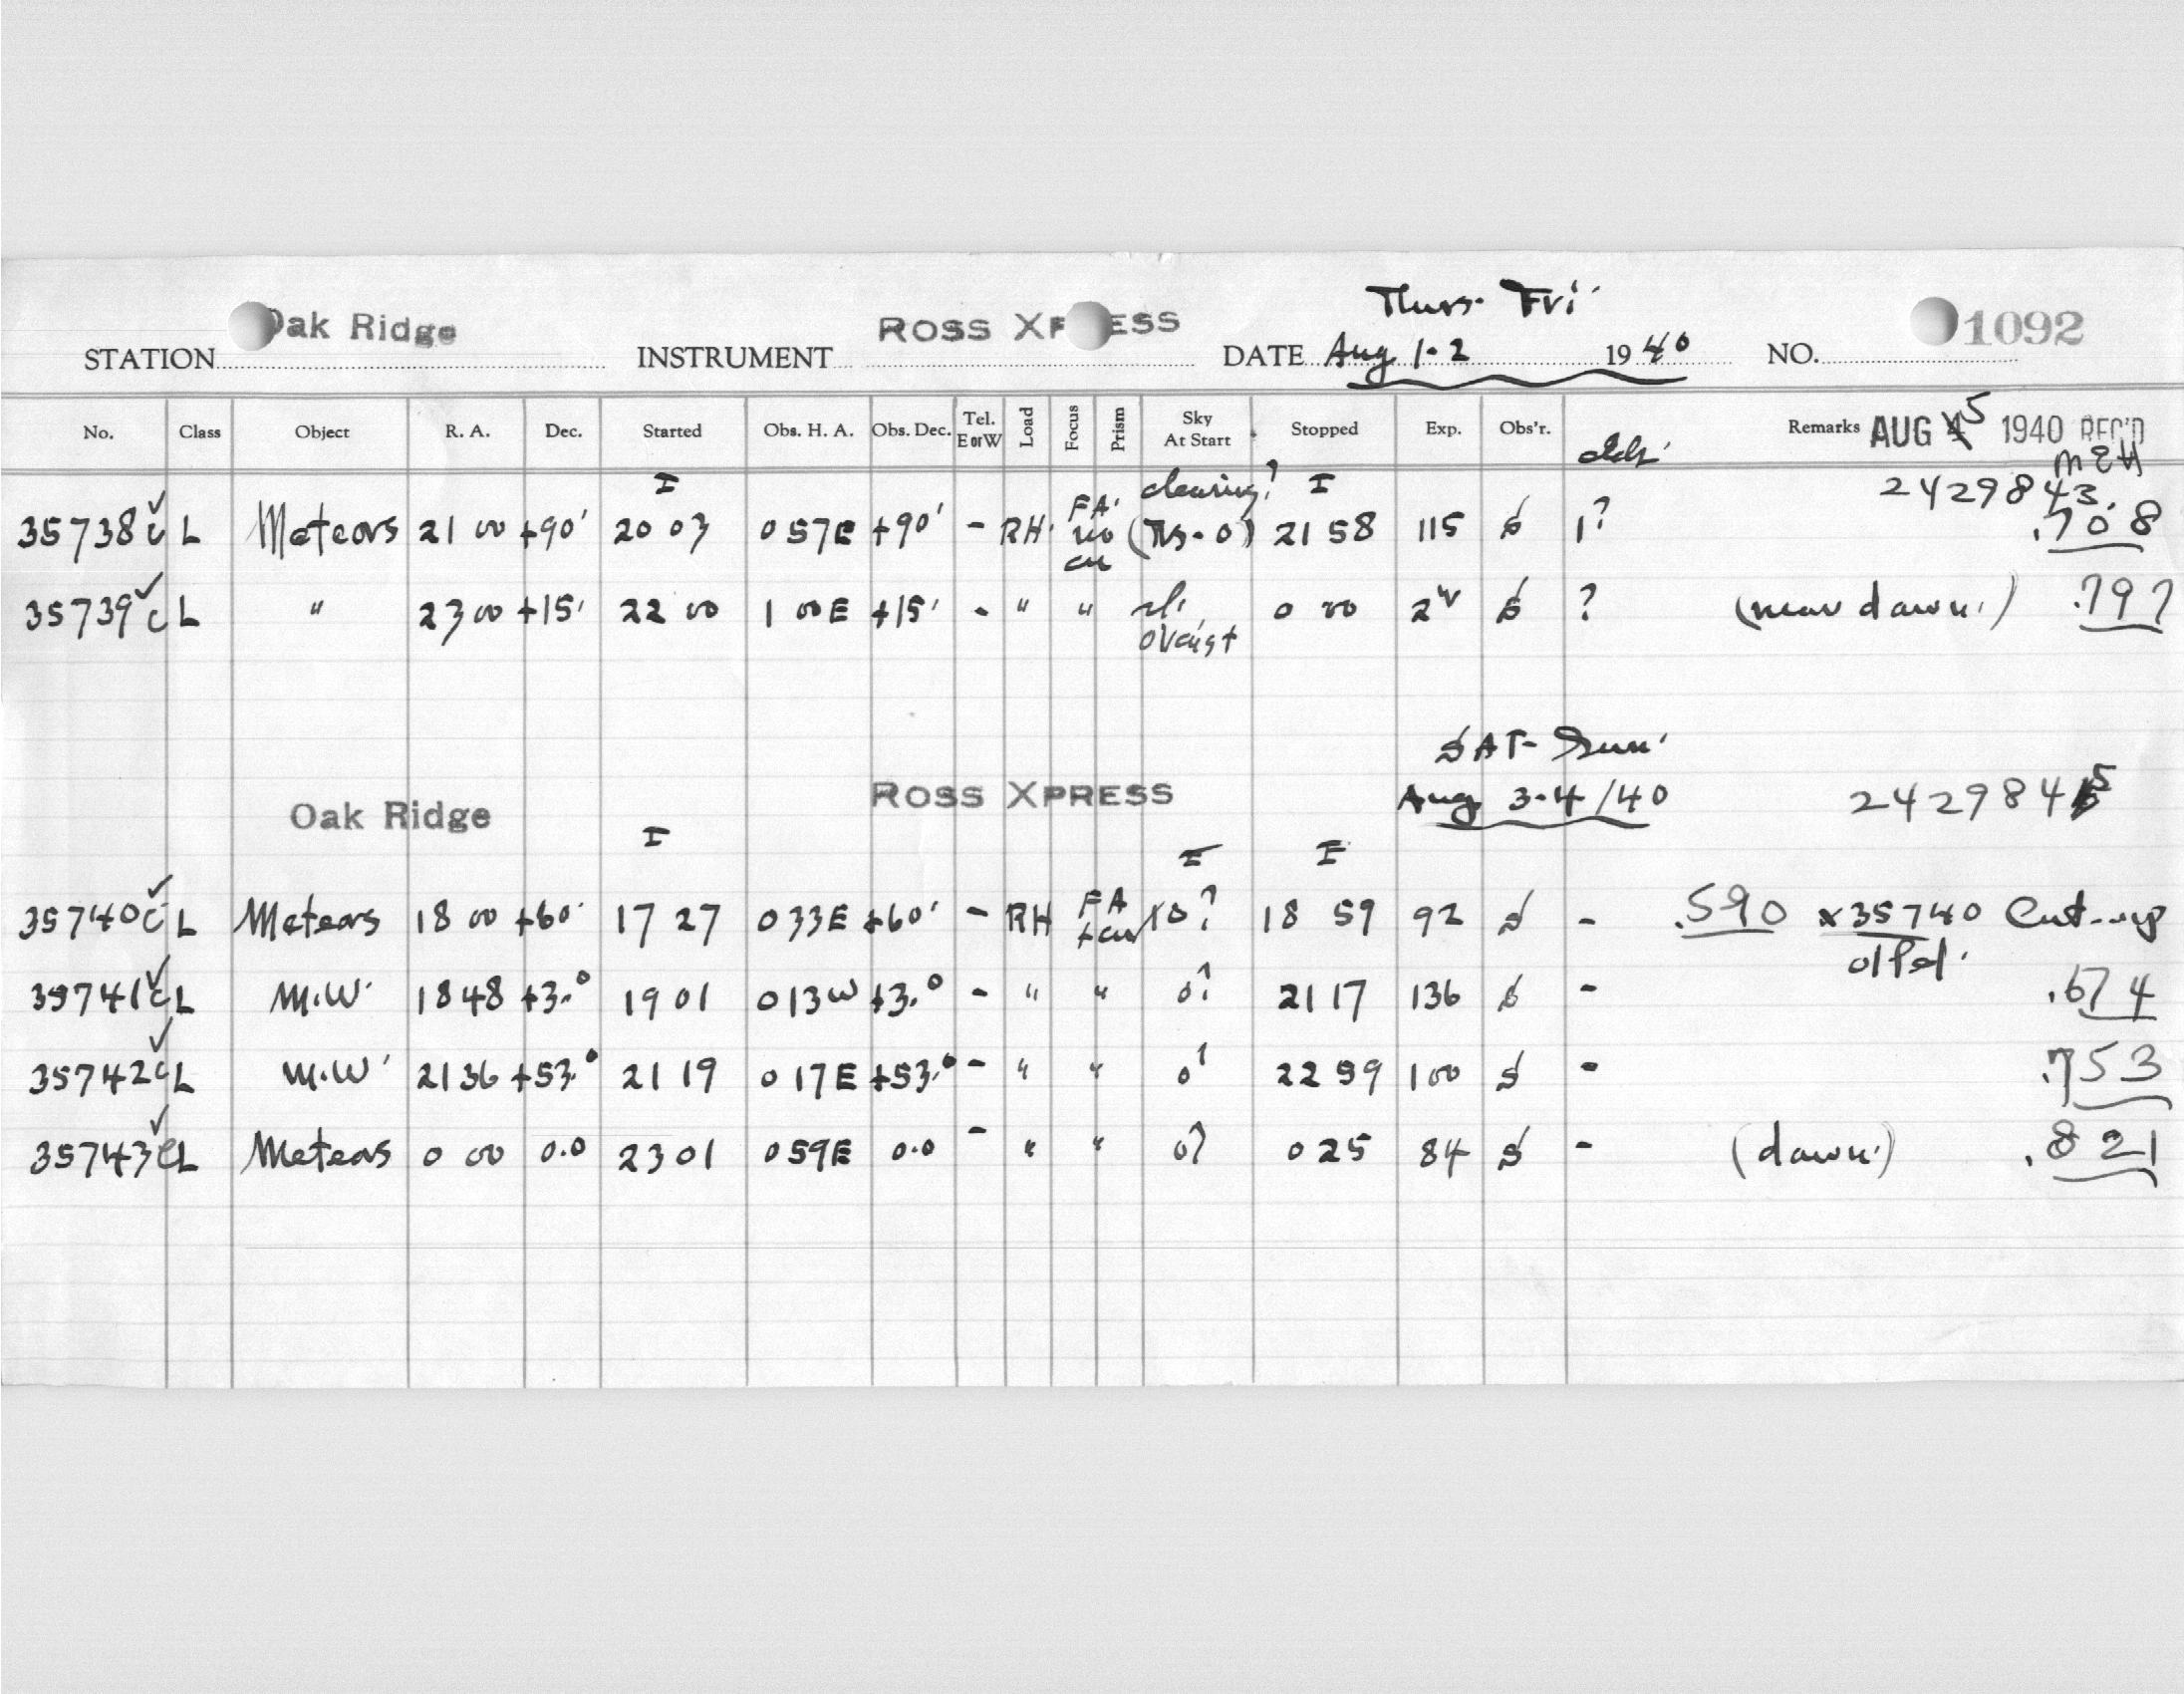 Thurs. Fri.
STATION Oak Ridge INSTRUMENT ROSS XPRESS DATE Aug 1-2 1940 NO. 1092
No. Class Object R. A. Dec. Started Obs. H. A. Obs. Dec. Tel. E or W Load Focus Prism Sky At Start Stopped Exp. Obs'r. Remarks AUG 5 1940 REC'D
I clearing? I 2429843.
35738 c L Meteors 21 00 +90° 20 03 0 57E +90° - RH. FA. no (Ms-0) 21 58 115 S 1? .708
35739 c L " 23 00 +15° 22 00 1 00E +15° - " " sl. ovcast 0 00 S ? (near dawn.) .797
SAT- Sun.
Oak Ridge ROSS XPRESS Aug 3-4/40 2429845
I I I
35740 c L Meteors 18 00 +60° 17 27 0 33E +60° - RH FA ? 18 59 92 S - .590 x35740 Cut-up
35741 c L M.W. 18 48 +3.0 19 01 0 13W +3.0 - " " 0? 21 17 136 S - .674
35742 c L M.W. 21 36 +53.0 21 19 0 17E +53.0 - " " 0? 22 59 100 S - .753
35743 c L Meteors 0 00 0.0 23 01 0 59E 0.0 - " " 0? 0 25 84 S - (dawn.) .821